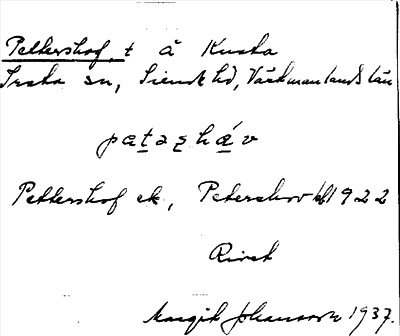 Pettershof, t å Knuta
Irsta sn, Siende hd, Västmanlands län
pataṣháv
Pettershof ek, Petershov kbl 1922
Margit Johansson 1937.